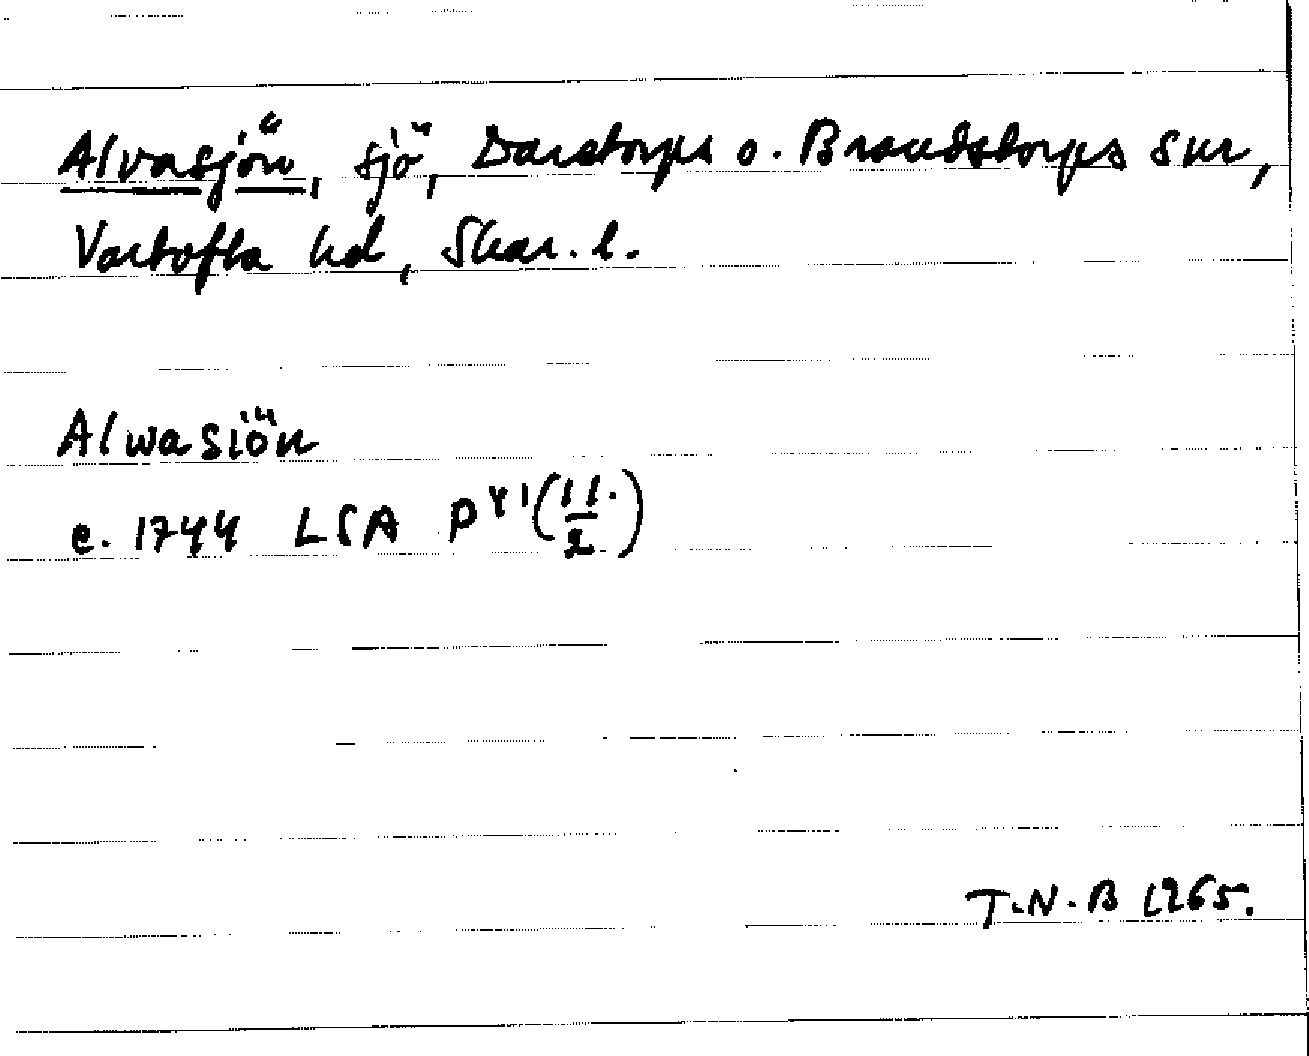 Alvasjön, sjö, Daretorps o. Brandstorps snr,
Vartofta hd, Skar. l.
Alwasiön
e. 1744 LSA P 41 (11./2.)
T.N.B 1265.